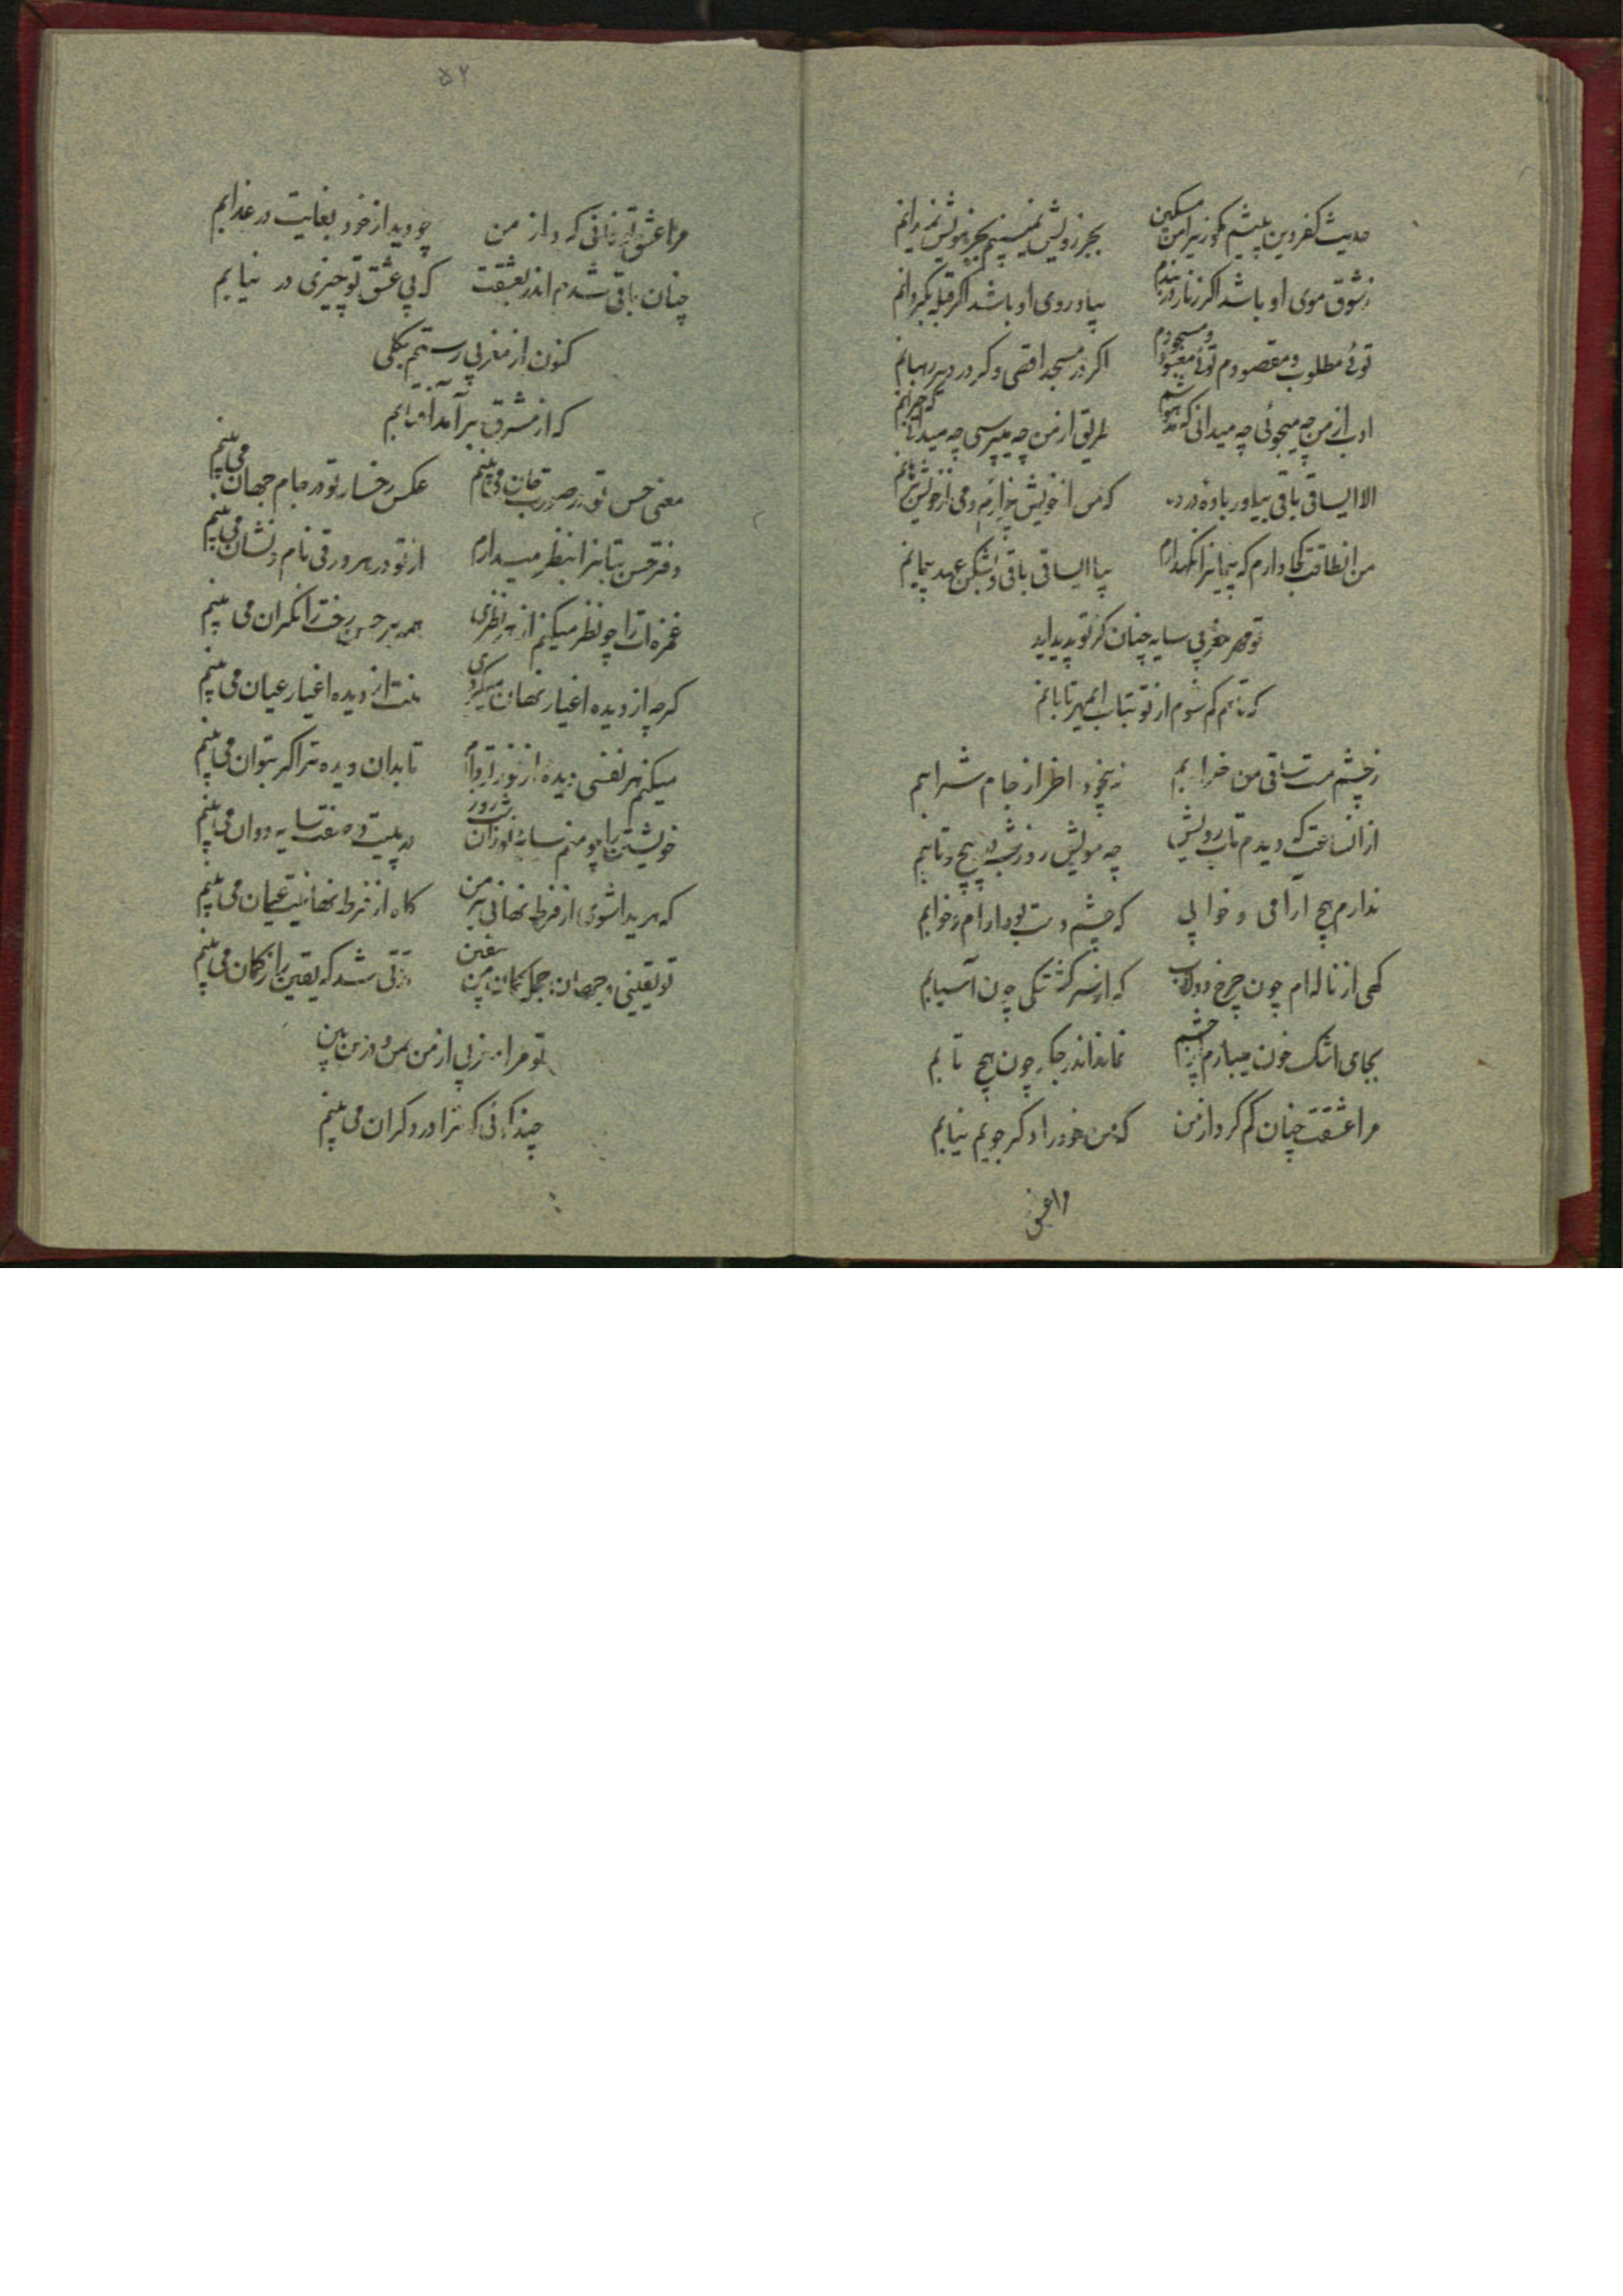 حدیث کفر و دین پیشم مگو زیرا من مسکین بجز رویش نمیبینم بجز مویش نمیدانم
ز شوق موی او باشد اگر زنار در بندم بیاد روی او باشد اگر قبله بگردانم
توئی مطلوب و مقصودم توئی معبود و مسجودم اگر در مسجد اقصی و گر در دیر رهبانم
ادب از من چه میجوئی چه میدانی که مدهوشم طریق از من چه میپرسی چه میدانی که حیرانم
الا ایساقی باقی بیاور باده در ده که من از خویش بیزارم و می از خویش
من انطاقت کجا دارم که پیمانرا نگهدارم بیا ایساقی باقی و بشکن عهد پیمانم
تو مهر مغربی سایه چنان کز تو پدید اید
که تا هم گم شوم از تو بتاب ایمهر تابانم
ز چشم مست ساقی من خرابم نه بیخود اخر از جام شرابم
از انساعت که دیدم تاب رویش چه مویش روز و شب در پیچ و تابم
ندارم هیچ ارامی و خوابی که چشم مست بود ارام و خوابم
گهی از ناله ام چون چرخ دولاب که از سرگشتگی چون آسیابم
بجای اشک خون میبارم از چشم نماند اندر جگر چون هیچ تابم
مرا عشقت چنان گم کرد از من که من خود را دگر جویم نیابم
مرا عشق
۵۲
مرا عشق تو فانی کرد از من چو دید از خود بغایت در عذابم
چنان باقی شدم اندر بعشقت که بی عشق تو چیزی در نیابم
کنون از مغربی رستم بکلی
که از مشرق برآمد آفتابم
معنی حسن تو در صورت جان می بینم عکس رخسار تو در جام جهان می بینم
دفتر حسن بتانرا بنظر میدارم از تو در هر ورقی نام و نشان می بینم
غمزه ات را چو نظر میکنم از هر نظری همه بر حسن رخت را نگران می بینم
گرچه از دیده اغیار نهان میگردی منت از دیده اغیار عیان می بینم
میکنم هر نفسی دیده از نور تو وام تا بدان دیده ترا گر بتوان می بینم
خویشتن را چو منم سایه نور ان شب و روز در پیت صفت سایه دوان می بینم
که پدید اشوی از فرط نهانی بر من گاه از فرط نهانیت عیان می بینم
تو یقینی و جهان جمله گمان من بیقین مدتی شد که یقین را ز گمان می بینم
تو مرا مغربی از من بمن و در من بین
چند گوئی که ترا در دگران می بینم